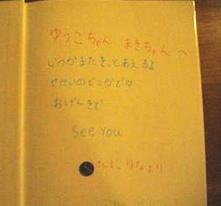 ゆうこちゃん まきちゃん へ
いつかまたきっとあえるよ
せかいのどこかで♡
おげんきで
See You
りなより